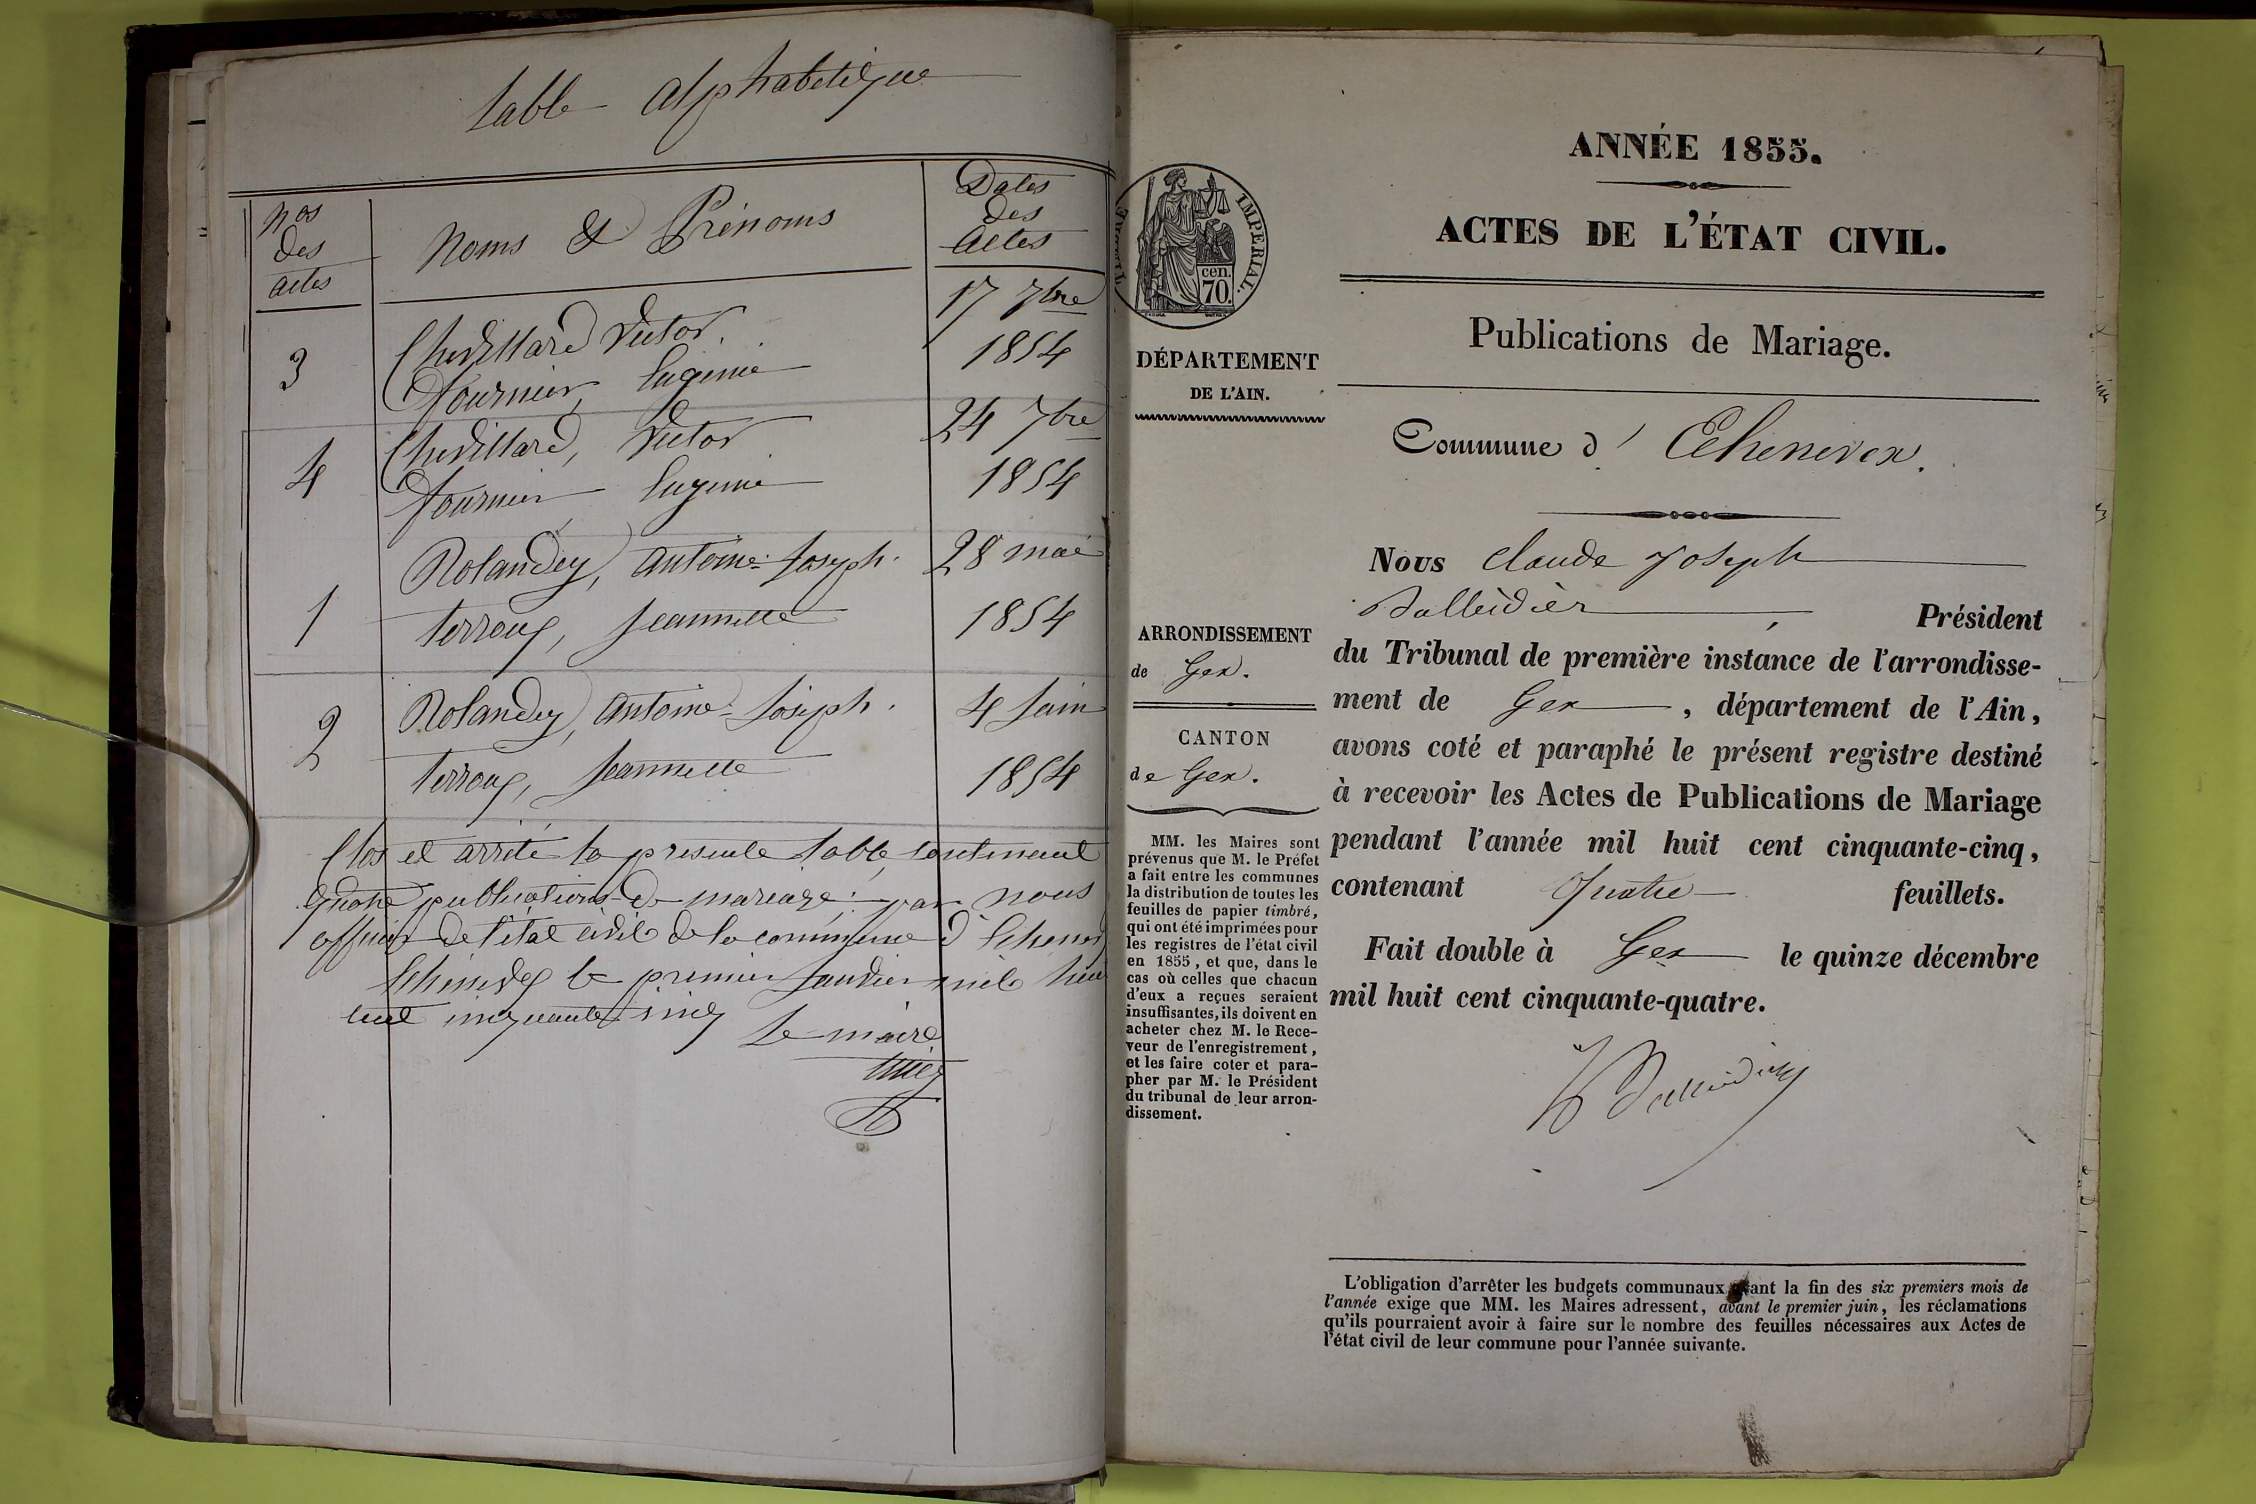 table alphabetique
Nos
des
actes
Noms & Prénoms
Dates
des
Actes
3
Chevillard Victor.
Fournier, Eugenie
17 7bre
1854
4
Chevillard, Victor
Fournier Eugenie
24 7bre
1854
1
Rolandey, Antoine-Joseph.
Terroux, Jeannette
28 mai
1854
2
Rolandey, Antoine-Joseph.
Terroux, Jeannette
4 Juin
1854
Clos et arrêté la presente table, contenant
quatre publications de mariage; par nous
officier de l'état civil de la commune d'
le premier Janvier mil huit
cent cinquante cinq
Le maire
ANNÉE 1855.
ACTES DE L'ÉTAT CIVIL.
Publications de Mariage.
IMPERIAL.
cen.
70.
DÉPARTEMENT
DE L'AIN.
Commune d' Echenevex.
ARRONDISSEMENT
de Gex.
CANTON
de Gex.
MM. les Maires sont
prévenus que M. le Préfet
a fait entre les communes
la distribution de toutes les
feuilles de papier timbré,
qui ont été imprimées pour
les registres de l'état civil
en 1855, et que, dans le
cas où celles que chacun
d'eux a reçues seraient
insuffisantes, ils doivent en
acheter chez M. le Rece-
veur de l'enregistrement,
et les faire coter et para-
pher par M. le Président
du tribunal de leur arron-
dissement.
Nous Claude Joseph
Balleidier, Président
du Tribunal de première instance de l'arrondisse-
ment de Gex, département de l'Ain,
avons coté et paraphé le présent registre destiné
à recevoir les Actes de Publications de Mariage
pendant l'année mil huit cent cinquante-cinq,
contenant Quatre feuillets.
Fait double à Gex le quinze décembre
mil huit cent cinquante-quatre.
L'obligation d'arrêter les budgets communaux avant la fin des six premiers mois de
l'année exige que MM. les Maires adressent, avant le premier juin, les réclamations
qu'ils pourraient avoir à faire sur le nombre des feuilles nécessaires aux Actes de
l'état civil de leur commune pour l'année suivante.